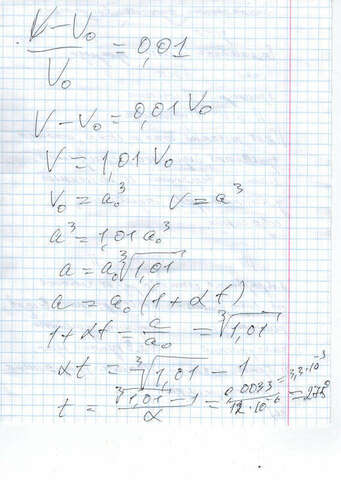 (V-V₀)/V₀ = 0,01
V-V₀ = 0,01 V₀
V = 1,01 V₀
V₀ = a₀³ V = a³
a³ = 1,01 a₀³
a = a₀ ∛1,01
a = a₀ (1+αt)
1+αt = a/a₀ = ∛1,01
αt = ∛1,01 - 1
t = (∛1,01 - 1)/α = 0,0033/(12·10⁻⁶) = 3,3·10⁻³ = 275°